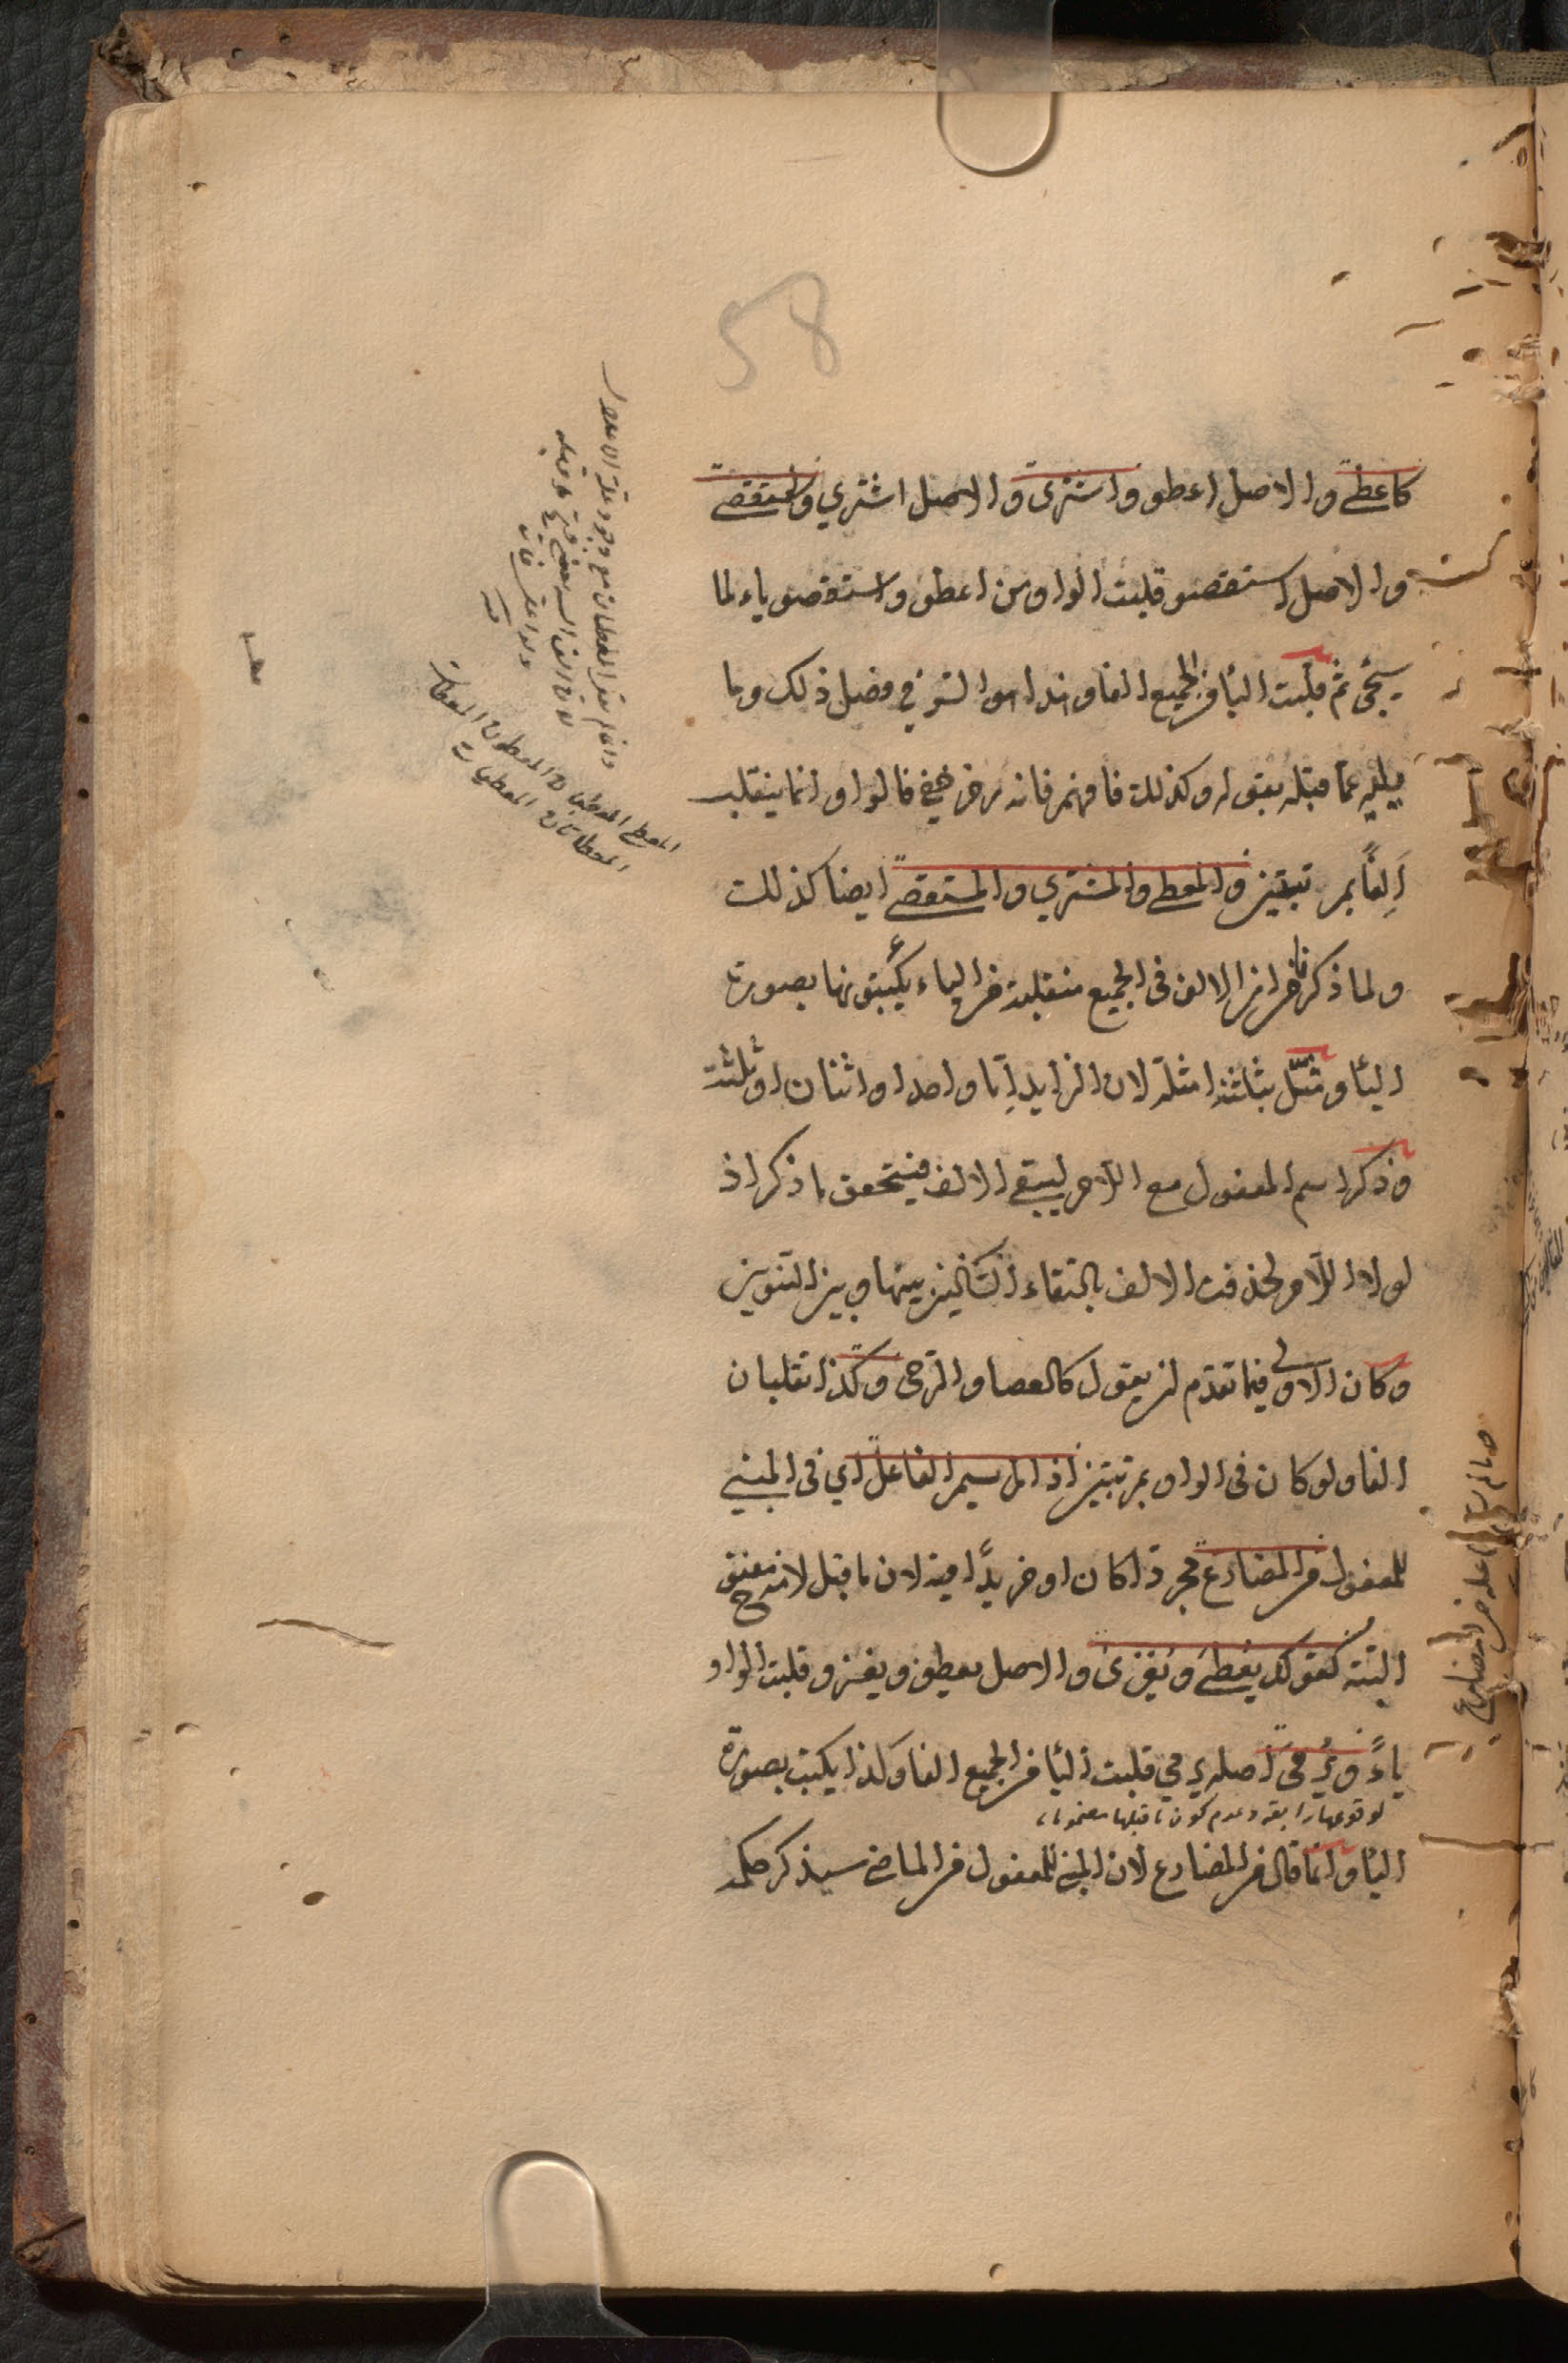 58
كاعطى والاصل اعطو واشترى والاصل اشتري واستقصى
والاصل استقصو قلبت الواو من اعطو واستقصو ياء لما
سيجئ ثم قلبت اليأ من الجميع الفا وهذا هو السر في فصل ذلك وما
يليه عما قبله بقوله وكذلك فافهم فانه رمز خفي فالواو انما ينقلب
اَلِفًا بمرتبتين والمعطى والمشترى والمستقصى ايضا كذلك
ولما ذكرنا من ان الالف فى الجميع منقلبة من الياء يكتبونها بصورة
اليأ ومثّل بثلثة امثلة لان الزايد اِمّا واحد او اثنان او ثلثة
وذكر اسم المفعول مع اللّام ليبقى الالف فيتحقق ما ذكر اذ
لولا اللّام لحذفت الالف بالتقاء السّاكنين بينها وبين التنوين
وكان الاولى فيما تقدّم ان يقول كالعصا والرّحى وكذا تقلبان
الفا ولو كان فى الواو بمرتبتين اذا لم يسم الفاعل اي فى المبني
للمفعول من المضارع مجردًا كان او مزيدًا فيه لان ما قبل لامه مفتوح
البتّة كقولك يُعْطَى ويُغْزَى والاصل يعطو ويغزو قلبت الواو
ياءً ويُرْمَى اصله يرمي قلبت اليأ من الجميع الفا وكذا يكتب بصورة
لوقوعها رابعة وعدم كون ما قبلها مضموما
اليأ وانما قال من المضارع لان المبني للمفعول من الماضي سيذكر حكمه
المعطى المعطيان المعطون المعطاة
المعطاتان المعطيات